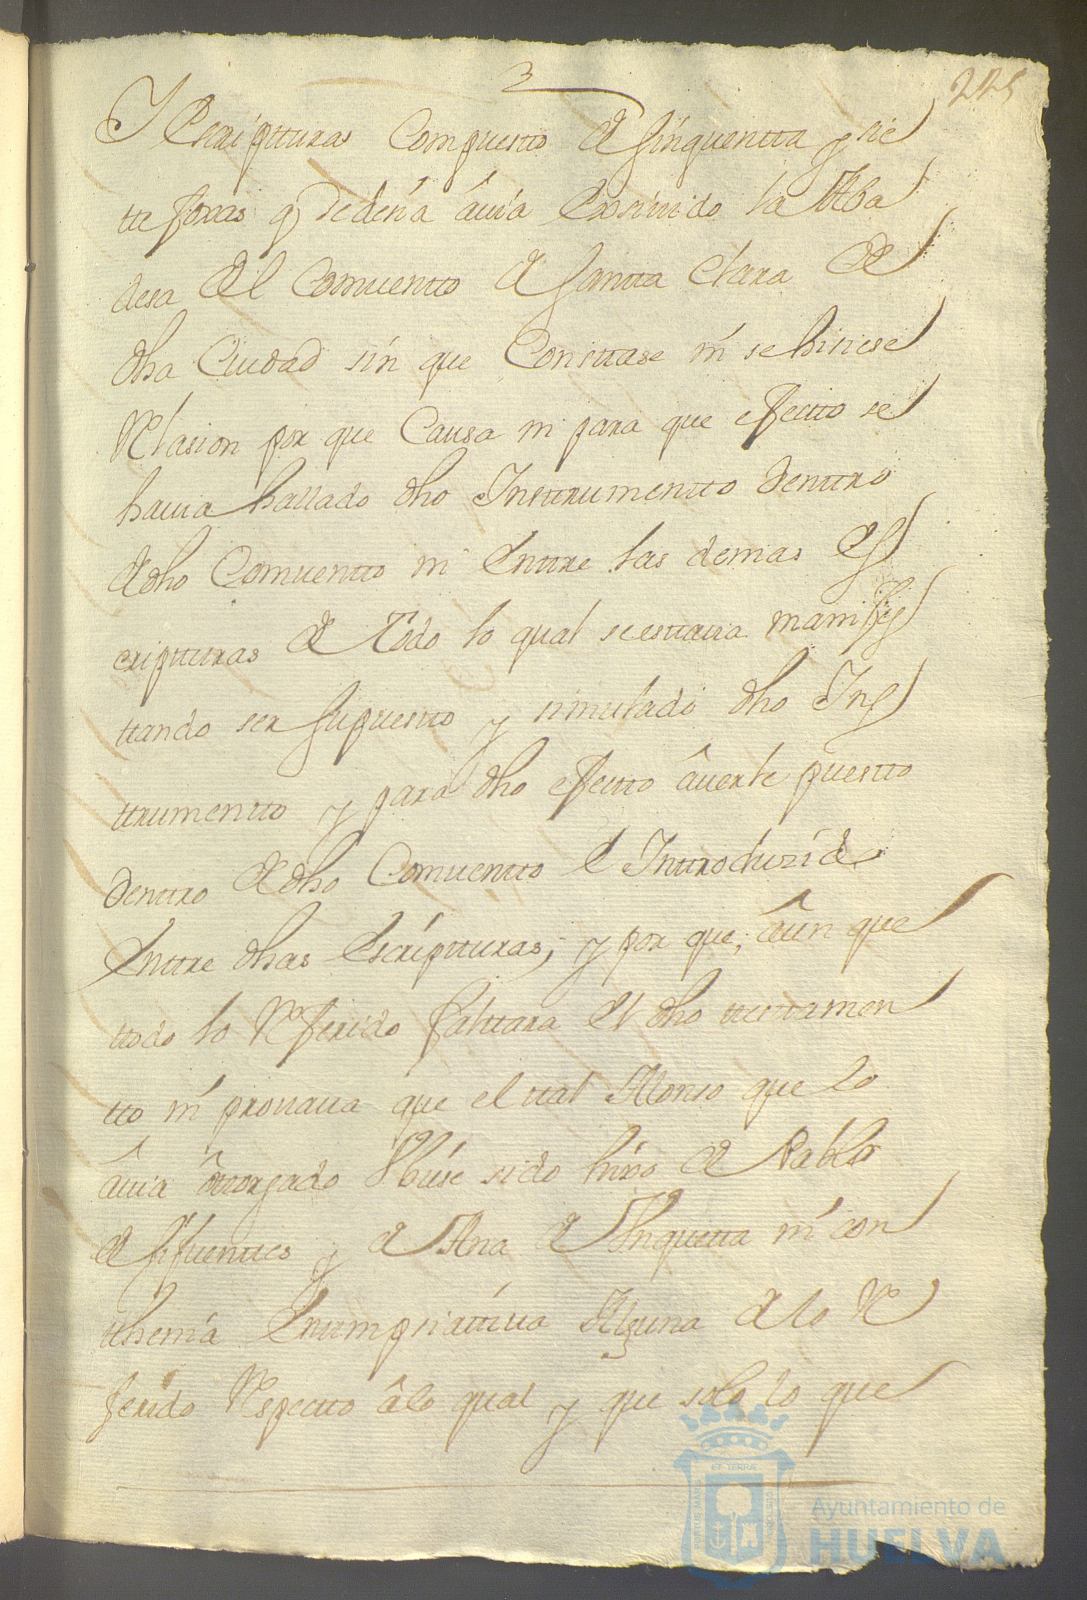 3
225
Y Escripttura Compuesto de sinquentta y sie
tte foxas q dedesia avia Exsivido la Aba
desa del Comuentto de Santta Clara de
dha Ciudad sin que Consttase ni se hisiese
Relasion por que Causa ni para que efectto se
havia hallado dho Insttrumentto denttro
de dho Comuentto ni Enttre las demas Es
cripturas de todo lo qual se esttava manifes
ttando ser supuestto y simulado dho Ins
ttrumentto y para dho efectto averle puestto
denttro de dho Comuentto e Inttroduzido
Enttre dhas Escriptturas; y por que, aun que
ttodo lo Referido falttara El dho ttesttamen
tto ni provava que el ttal Alonso que lo
avia ottorgado Vbiese sido hixo de Pablo
de Sifuenttes y de Ana de Inquetta ni con
tthenia Enumerattiva Alguna de lo Re
ferido Respectto a lo qual y que solo lo que
ET TERRÆ
Ayuntamiento de
HUELVA